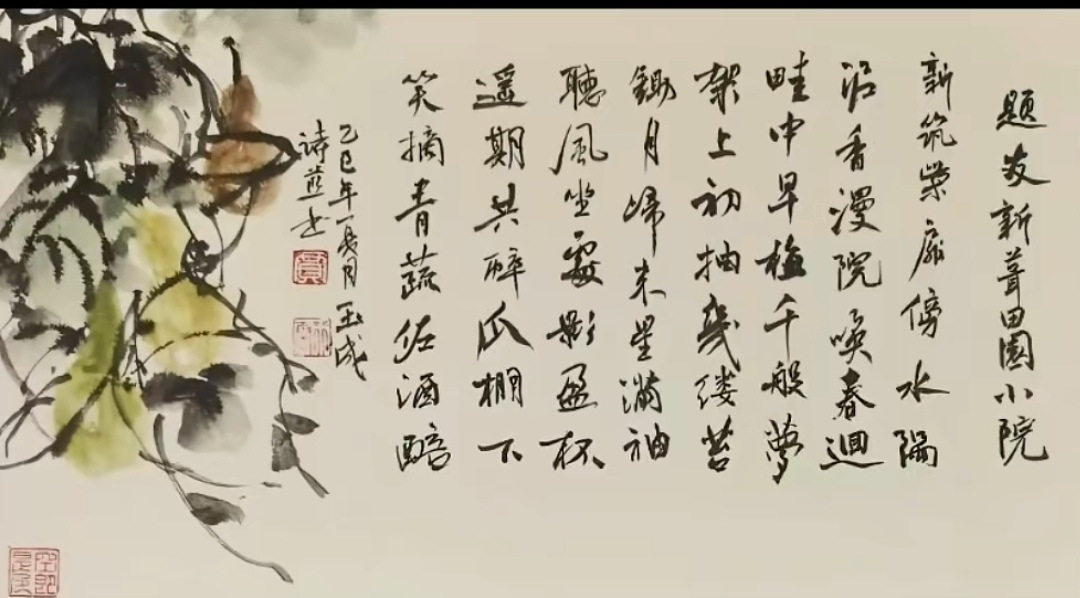 题友新葺田園小院
新筑柴扉傍水隈
泥香漫院唤春迴
畦中早植千般夢
架上初抽幾缕苔
鋤月歸来星滿袖
聽風坐處影盈杯
遥期共醉瓜棚下
笑摘青蔬佐酒醅
乙巳年夏月 玉成
詩并书
空即是色